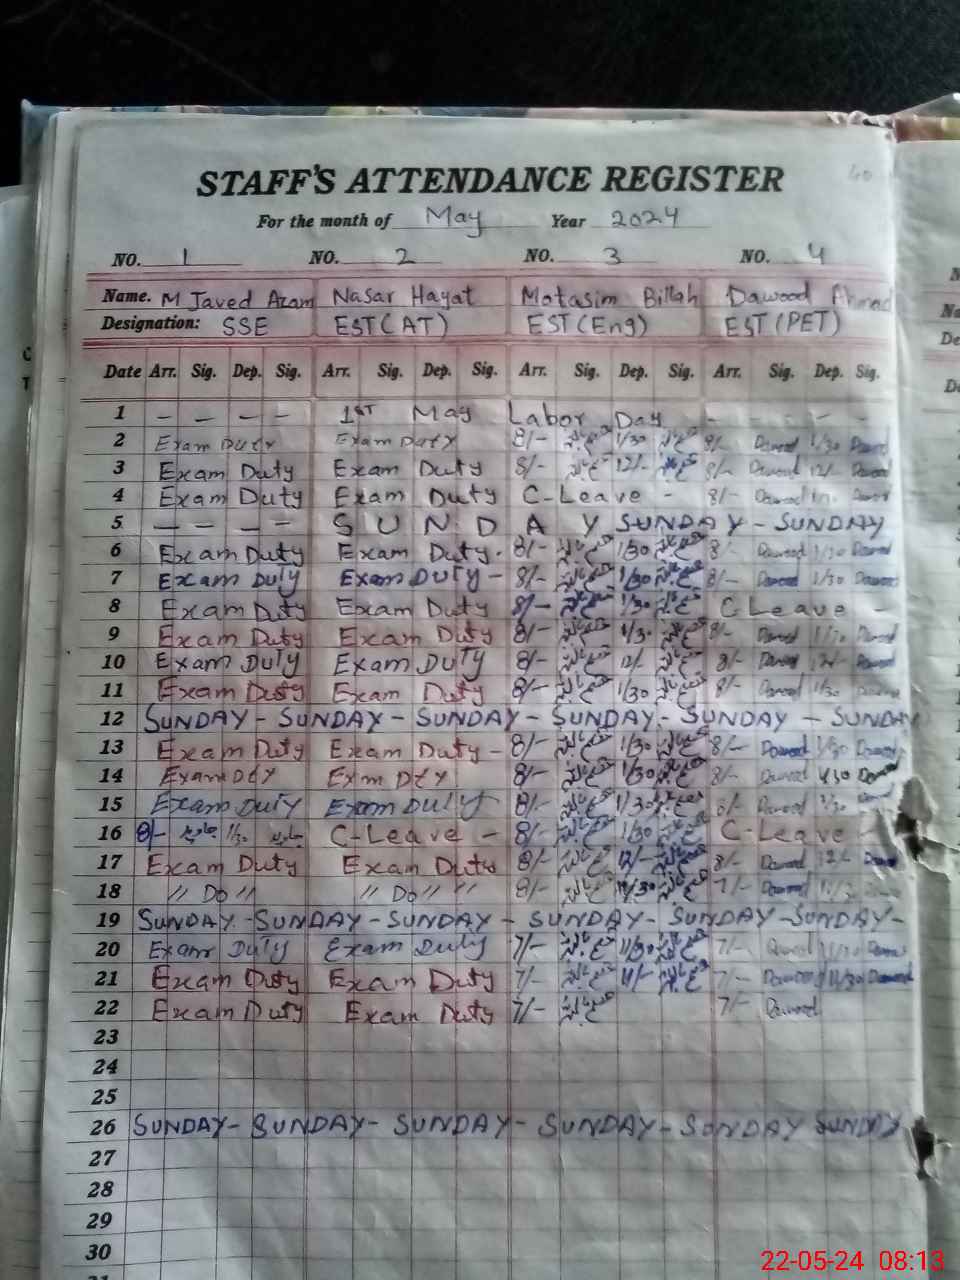 STAFF'S ATTENDANCE REGISTER 40
For the month of May Year 2024
NO. 1 NO. 2 NO. 3 NO. 4
Name. M Javed Azam Nasar Hayat Motasim Billah Dawood Ahmad
Designation: SSE EST(AT) EST(Eng) EST(PET)
Date Arr. Sig. Dep. Sig. Arr. Sig. Dep. Sig. Arr. Sig. Dep. Sig. Arr. Sig. Dep. Sig.
1 - - - - 1ST May Labor Day - - - -
2 Exam Duty Exam Duty 8/- 1/30 8/- Dawood 1/30 Dawood
3 Exam Duty Exam Duty 8/- 12/- 8/- Dawood 12/- Dawood
4 Exam Duty Exam Duty C-Leave - 8/- Dawood
5 - - - - S U N D A Y SUNDAY - SUNDAY
6 Exam Duty Exam Duty. 8/- 1/30 8/- Dawood 1/30 Dawood
7 Exam Duty Exam DUTY - 8/- 1/30 8/- Dawood 1/30 Dawood
8 Exam Duty Exam Duty 8/- 1/30 C Leave -
9 Exam Duty Exam Duty 8/- 1/30 8/- Dawood 1/30 Dawood
10 Exam DUTY Exam DUTY 8/- 12/- 8/- Dawood 12/- Dawood
11 Exam Duty Exam Duty 8/- 1/30 8/- Dawood 1/30 Dawood
12 SUNDAY - SUNDAY - SUNDAY - SUNDAY - SUNDAY - SUNDAY
13 Exam Duty Exam Duty - 8/- 1/30 8/- Dawood 1/30 Dawood
14 Exam Dty Exm Dty 8/- 1/30 8/- Dawood 1/30 Dawood
15 Exam Duty Exam Duty 8/- 1/30 8/- Dawood 1/30 Dawood
16 8/- جاوید 1/30 جاوید C-Leave - 8/- 1/30 C-Leave -
17 Exam Duty Exam Duty 8/- 12/- 8/- Dawood 12/- Dawood
18 " Do " " Do " " 8/- 7/- Dawood
19 SUNDAY - SUNDAY - SUNDAY - SUNDAY - SUNDAY - SUNDAY -
20 Exam Duty Exam Duty 7/- 11/30 7/- Dawood 11/30 Dawood
21 Exam Duty Exam Duty 7/- 11/- 7/- Dawood 11/30 Dawood
22 Exam Duty Exam Duty 7/- 7/- Dawood
23
24
25
26 SUNDAY - SUNDAY - SUNDAY - SUNDAY - SUNDAY SUNDAY
27
28
29
30
22-05-24 08:13